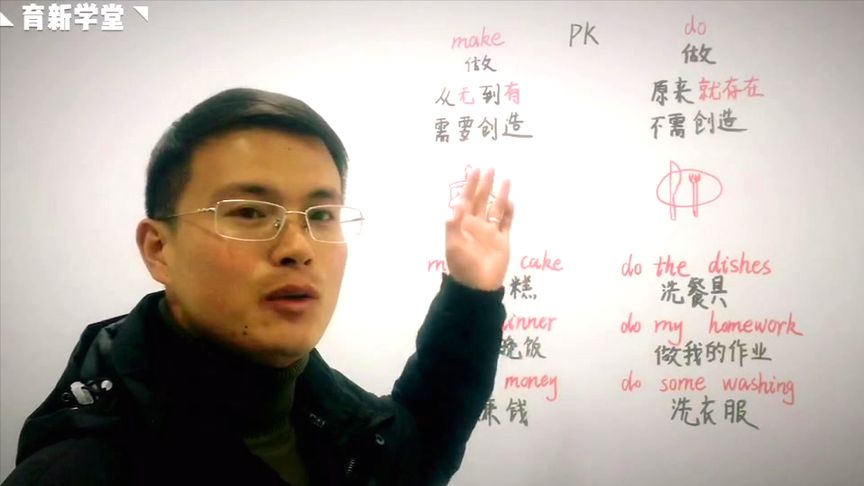 育新学堂
make PK do
做 做
从无到有 原来就存在
需要创造 不需创造
cake do the dishes
糕 洗餐具
do my homework
晚饭 做我的作业
money do some washing
钱 洗衣服